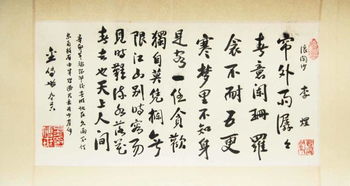 浪淘沙 李煜
帘外雨潺々
春意闌珊羅
衾不耐五更
寒夢里不知身
是客一任貪歡
獨自莫凭欄無
限江山別時容易
見時難流水落花
春去也天上人间